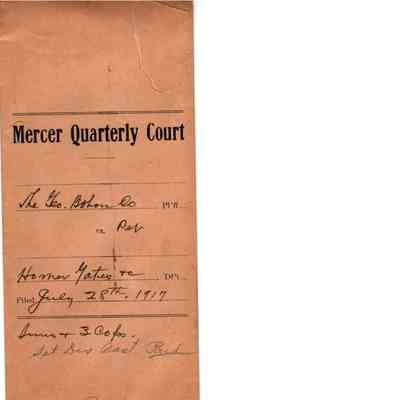 Mercer Quarterly Court
The Geo. Bohon Co Plff.
vs. Pet
Homer Yates &c Dft.
Filed July 28th, 1917
Sums & 3 Cops.